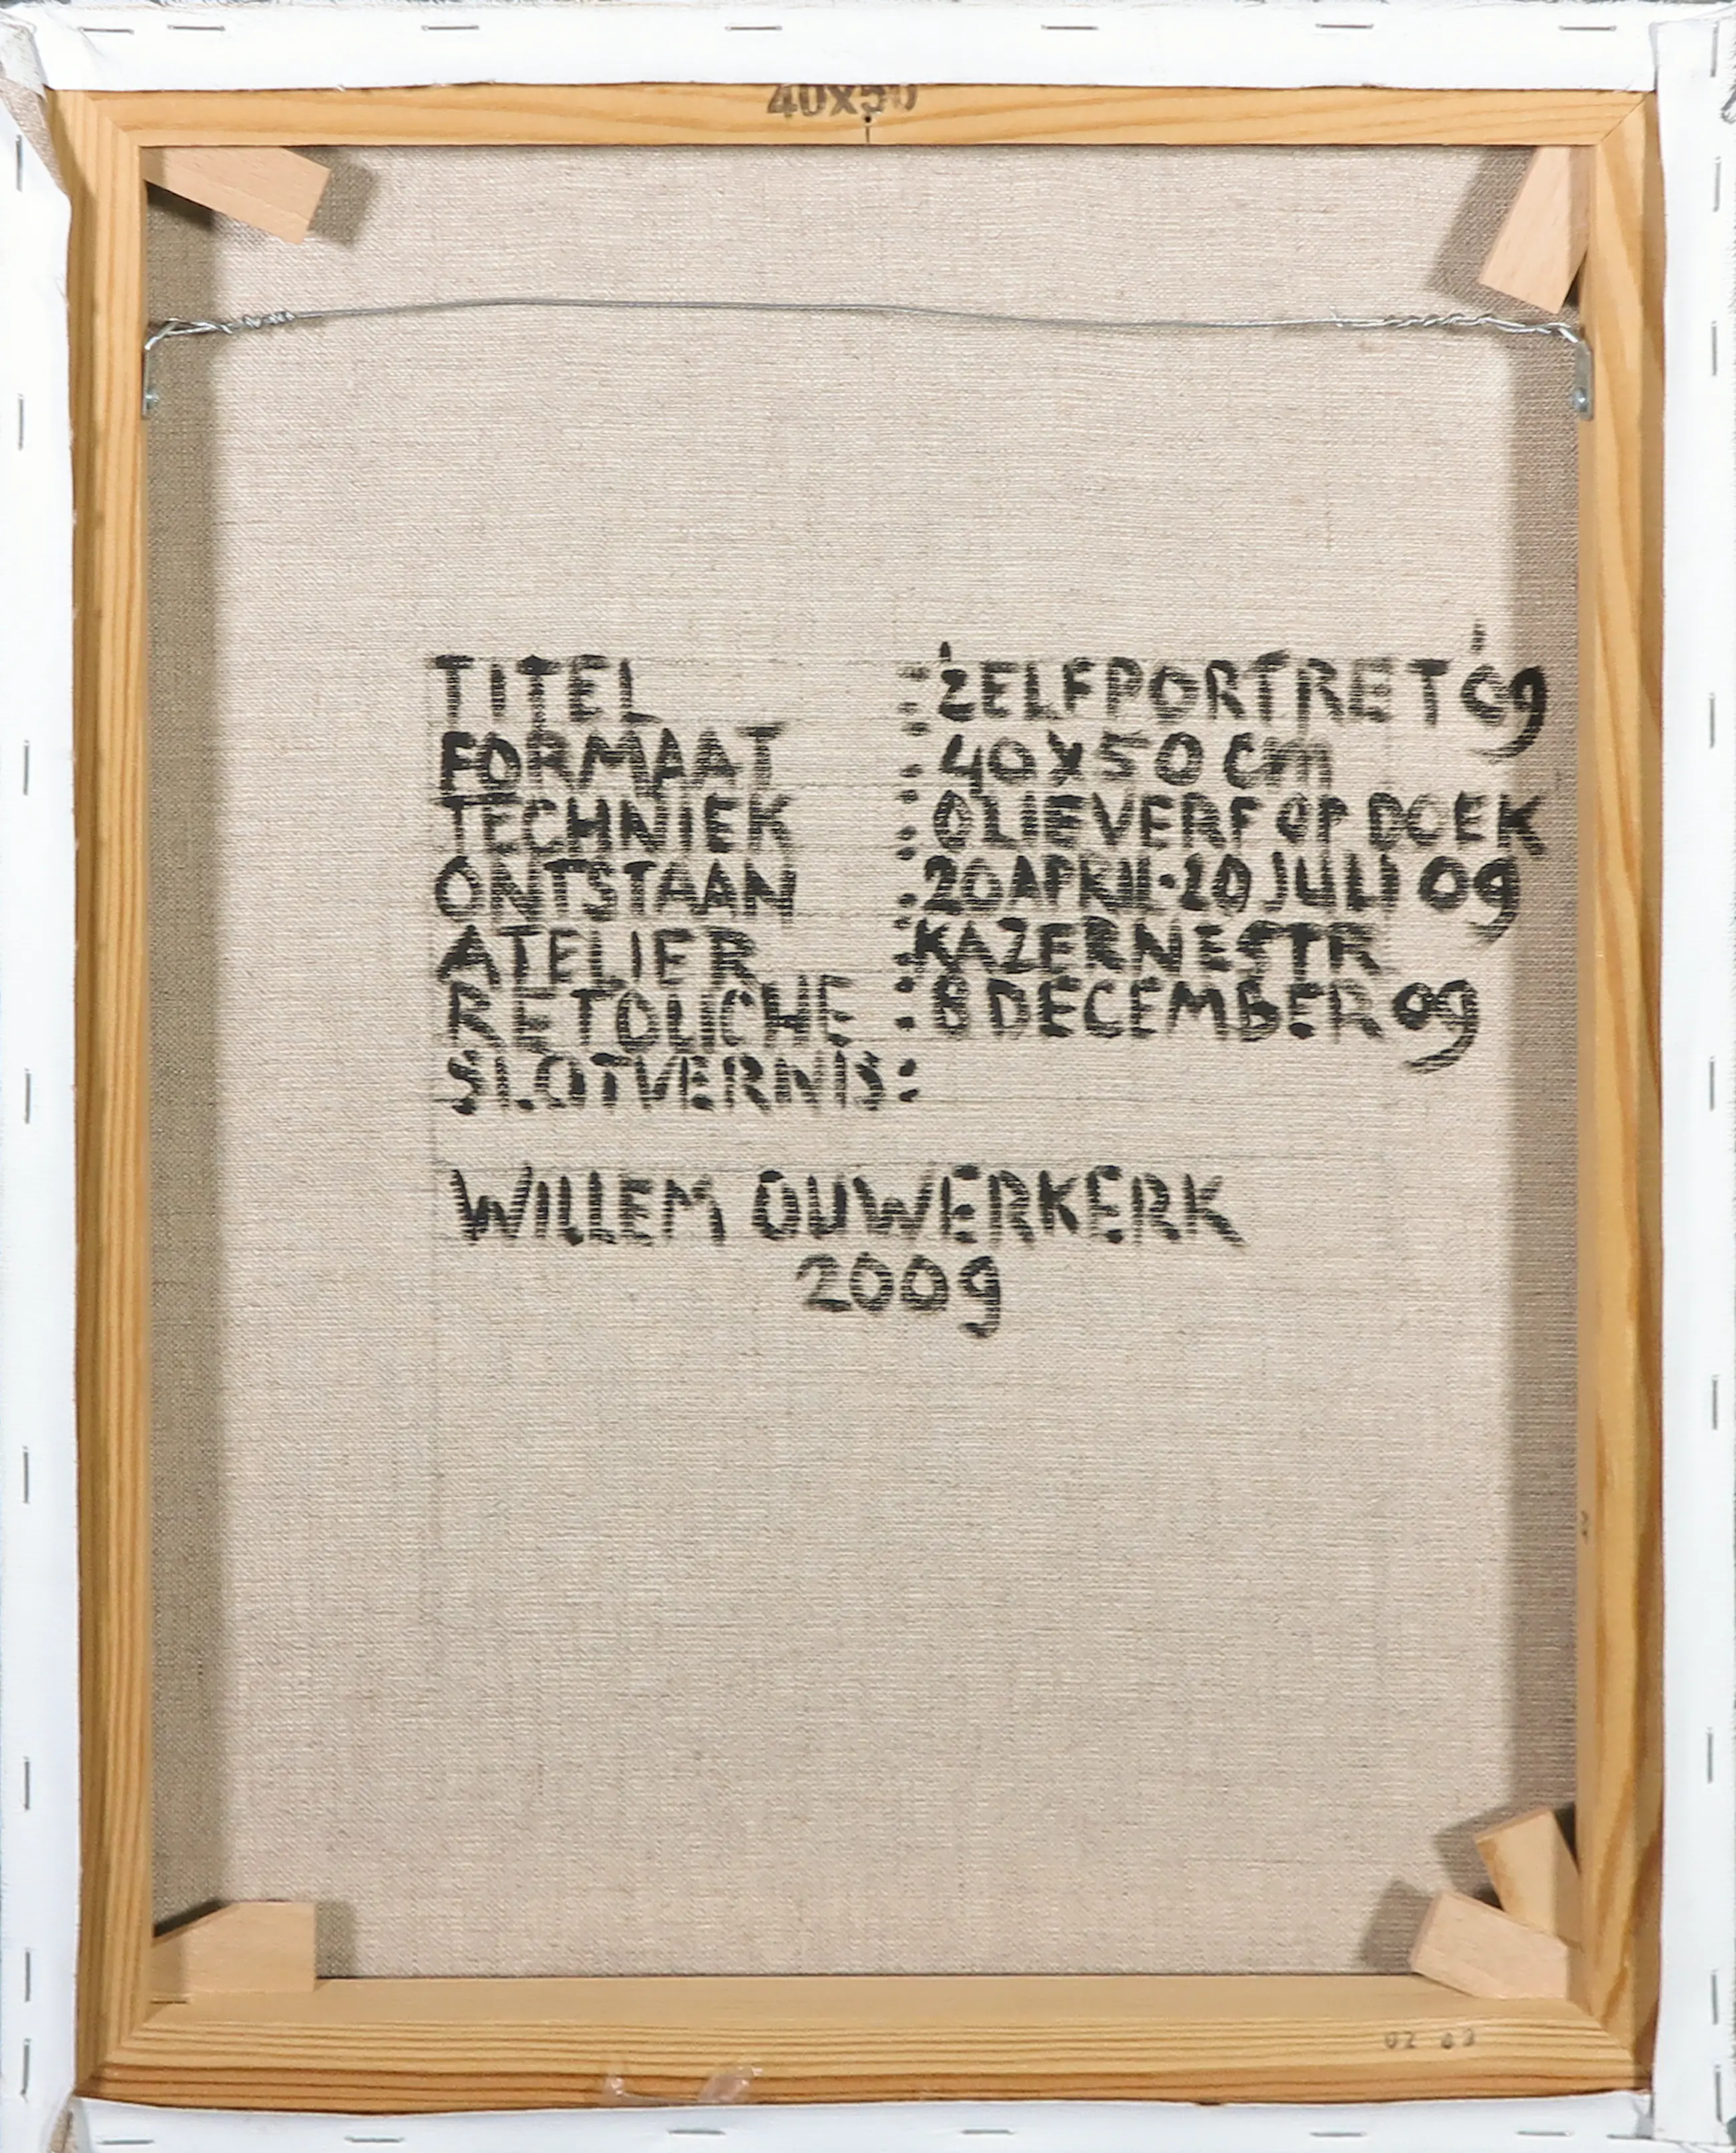 40x50
TITEL : 'ZELFPORTRET '09
FORMAAT : 40x50 cm
TECHNIEK : OLIEVERF OP DOEK
ONTSTAAN : 20 APRIL - 20 JULI 09
ATELIER : KAZERNESTR
RETOUCHE : 8 DECEMBER 09
SLOTVERNIS :
WILLEM OUWERKERK
2009